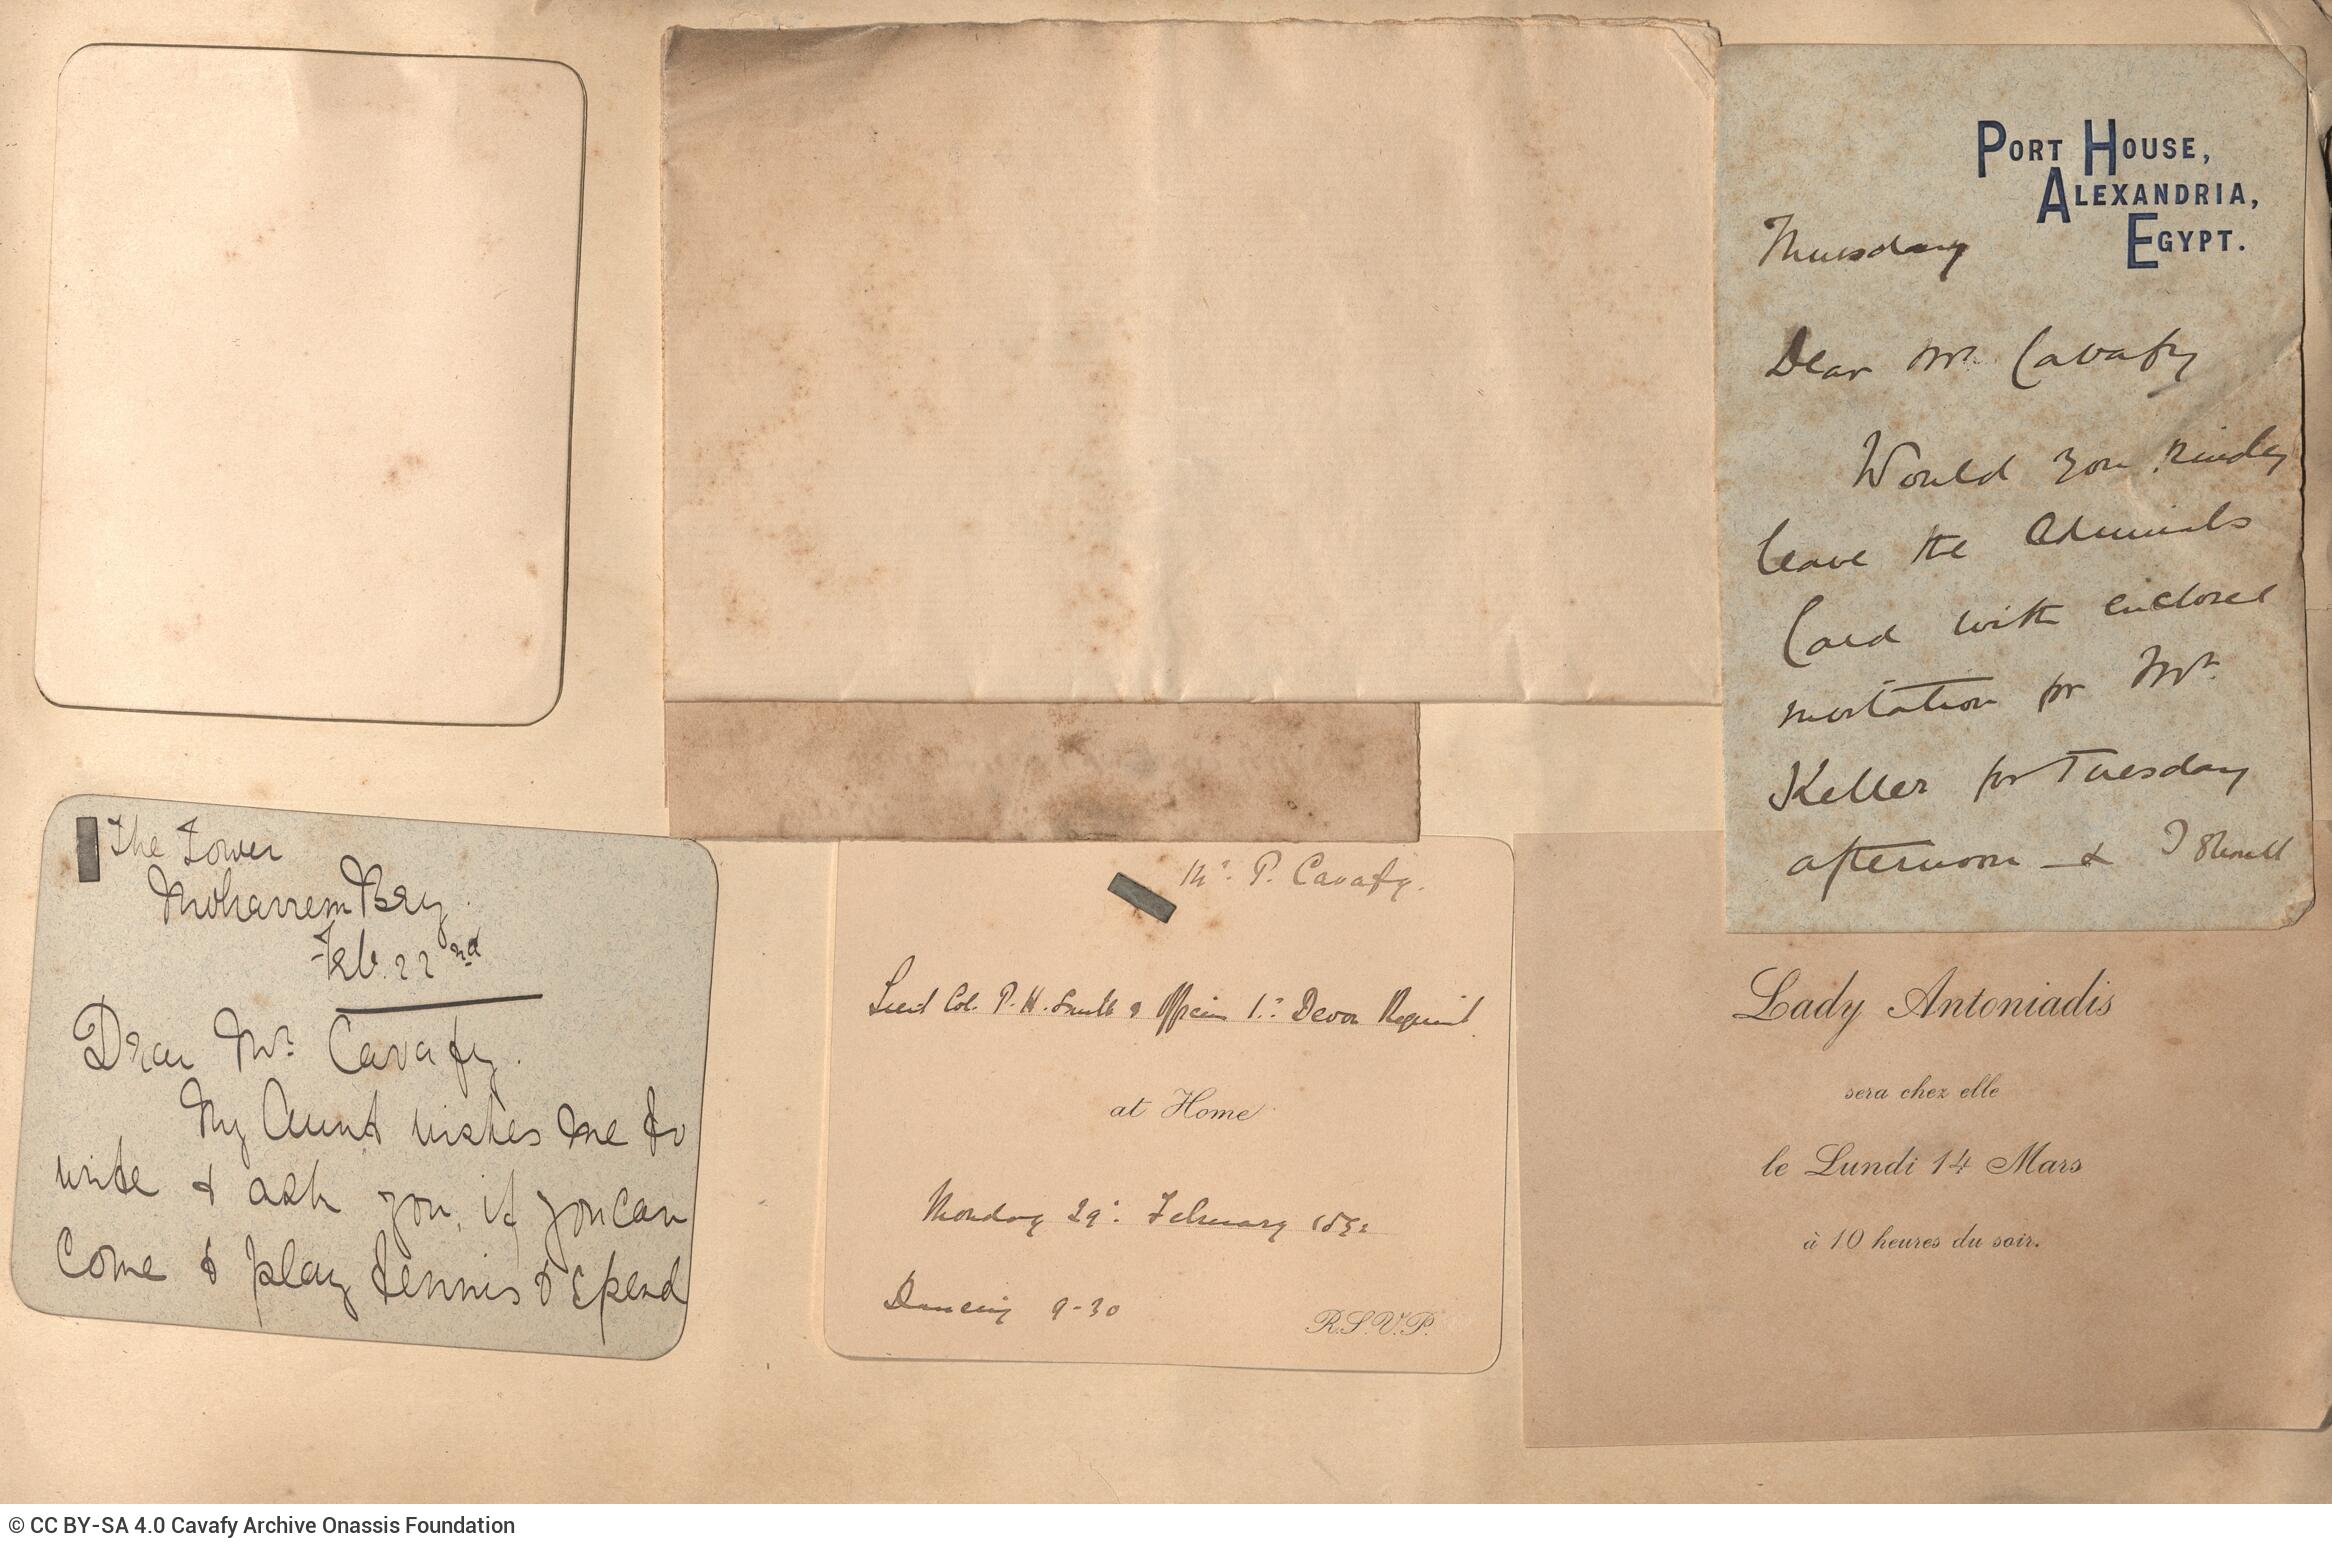 The Tower
Moharrem Bey.
Feb. 22nd
Dear Mr. Cavafy.
My Aunt wishes me to
write & ask you, if you can
come & play tennis & spend
Mr. P. Cavafy.
Lieut Col. P. H. Smith & Officers 1st Devon Regiment.
at Home
Monday 29th February 1892
Dancing 9-30
R.S.V.P.
PORT HOUSE,
ALEXANDRIA,
EGYPT.
Thursday
Dear Mr. Cavafy
Would you kindly
leave the Admirals
Card with enclosed
invitation for Mr.
Keller for Tuesday
afternoon - & I should
Lady Antoniadis
sera chez elle
le Lundi 14 Mars
à 10 heures du soir.
© CC BY-SA 4.0 Cavafy Archive Onassis Foundation